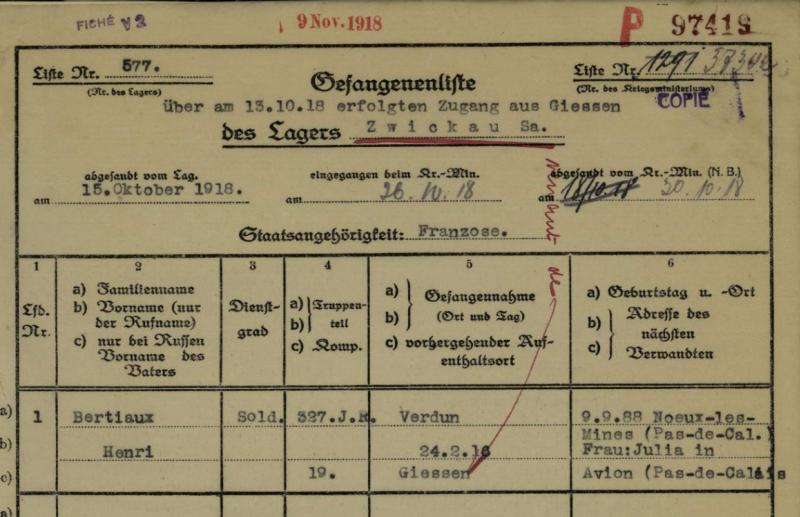 FICHÉ V2
9 Nov. 1918
P 97419
Liste Nr. 577.
(Nr. des Lagers)
Gefangenenliste
Liste Nr. 1291
(Nr. des Kriegsministeriums)
COPIE
über am 13.10.18 erfolgten Zugang aus Giessen
des Lagers Zwickau Sa.
abgesandt vom Lag.
am 15.Oktober 1918.
eingegangen beim Kr.-Min.
am 26.10.18
abgesandt vom Kr.-Min. (N. B.)
am 18/10.18 30.10.18
venant de
Staatsangehörigkeit: Franzose.
1 2 3 4 5 6
Lfd. Nr.
a) Familienname
b) Vorname (nur
der Rufname)
c) nur bei Russen
Vorname des
Vaters
Dienst-
grad
a) Truppen-
b) teil
c) Komp.
a) Gefangennahme
b) (Ort und Tag)
c) vorhergehender Auf-
enthaltsort
a) Geburtstag u. -Ort
b) Adresse des
nächsten
c) Verwandten
a) 1 Bertiaux Sold. 327.J.R. Verdun 9.9.88 Noeux-les-
Mines (Pas-de-Cal.)
b) Henri 24.2.16 Frau:Julia in
c) 19. Giessen Avion (Pas-de-Calais
a)